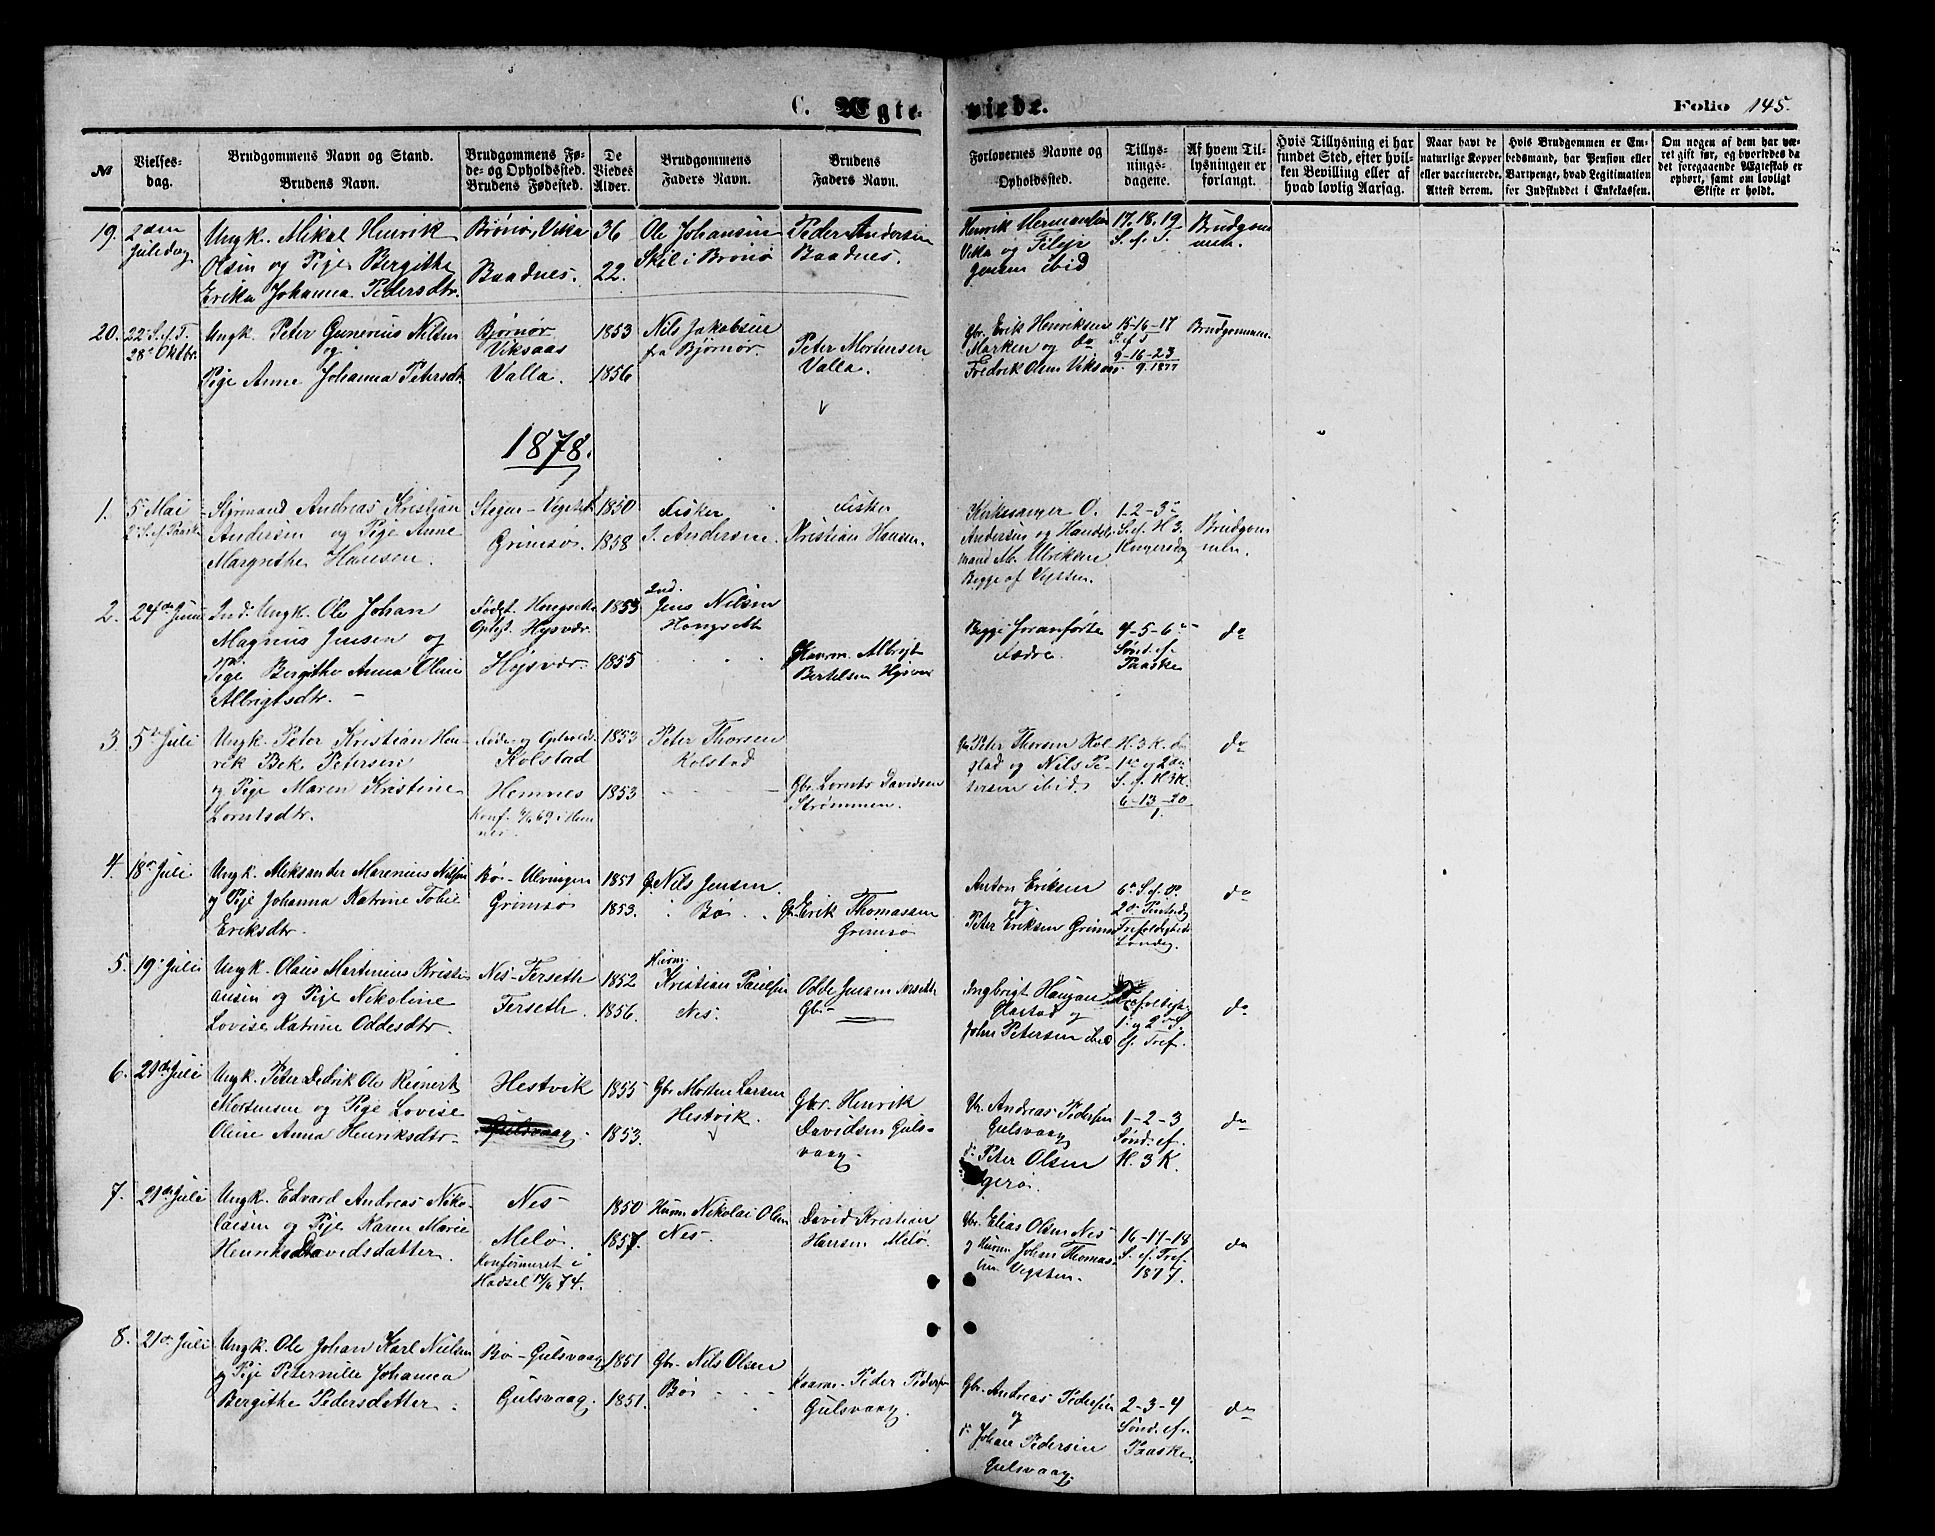 C. Ægte-
viede.
Folio 145.
№
Vielses-
dag.
Brudgommens Navn og Stand.
Brudens Navn.
Brudgommens Fø-
de- og Opholdssted.
Brudens Fødested.
De
Viedes
Alder.
Brudgommens
Faders Navn.
Brudens
Faders Navn.
Forlovernes Navne og
Opholdssted.
Tillys-
nings-
dagene.
Af hvem Til-
lysningen er
forlangt.
Hvis Tillysning ei har
fundet Sted, efter hvil-
ken Bevilling eller af
hvad lovlig Aarsag.
Naar havt de
naturlige Kopper
eller vaccinerede.
Attest derom.
Hvis Brudgommen er Em-
bedsmand, har Pension eller
Vartpenge, hvad Legitimation
for Indskuddet i Enkekassen.
Om nogen af dem har væ-
ret gift før, og hvorledes da
det foregaaende Ægteskab er
ophørt, samt om lovligt
Skifte er holdt.
19.
2den
Juledag
Ungk. Mikal Henrik
Olsen og Pige Bergithe
Erika Johanna Pedersdtr.
Brønø, Vika
Baadnes.
36
22.
Ole Johansen
Skil i Brønø
Peder Andersen
Baadnes.
Henrik Hermansen
Vika og Filip
Jensen ibid
17. 18. 19
S. ef. T.
Brudgom
men.
20.
22. S. ef. T.
28. Oktbr.
Ungk. Peter Gunerius Nilsen
og
Pige Anne Johanna Petersdt.
Bjørnør
Viksaas
Valla.
1853
1856
Nils Jakobsen
fra Bjørnør.
Peter Mortensen
Valla.
Gbr. Erik Henriksen
Marken og do
Fredrik Olsen Viksaas
15-16-17
S. ef T
9-16-23
9. 1877
Brudgommen
1878.
1.
5. Mai
2. S. ef. Paaske
Styrmand Andreas Kristian
Andersen og Pige Anne
Margrethe Hansen.
Stegen - Vegsted
Grimsø.
1850
1858
Fisker
J. Andersen.
Fisker
Kristian Hansen.
Kirkesanger O.
Andersen og Handels
mand M. Ulriksen
Begge af Vegsten.
1-2-3
S. ef. H 3.
Kongersdag
Brudgom
men.
2.
24de Juni
Ind. Ungk. Ole Johan
Magnus Jensen og
Pige Bergithe Anna Oline
Albrigtsdtr. -
Født Hongsett
Oplgt. Hysvær.
Hysvær.
1853
1855
Ind.
Jens Nilsen
Hongsett
Huum. Albrigt
Bertelsen Hysvær
Begge Foranførte
Fædre.
4-5-6
Sønd. ef.
Paaske
do
3.
5te Juli
Ungk. Peter Kristian Hen-
rik Bek Petersen
og Pige Maren Kristine
Lorntsdtr.
Føde og Opholds.
Kolstad
Hemnes
Konf. 69 i Hem
nes.
1853
1853
Peter Thorsen
Kolstad
Gbr. Lornts Davidsen
Strømmen.
Gbr Peter Thorsen Kol-
stad og Nils Pe-
tersen ibid.
H. 3 K. dag
1ste og 2den
S. ef. H 3 K.
6-13-20
1.
do
4.
18de Juli
Ungk. Aleksander Marenius Nilsen
og Pige Johanna Katrine Tobie
Eriksdtr.
Bøi - Ulvingen
Grimsø
1851
1853.
G. Nils Jensen.
Bøi
G. Erik Thomassen
Grimsø
Anton Eriksen
og
Peter Eriksen Grimsø
6te S. ef. P.
2den Pintsedag
Trefoldigheds
Søndag.
do
5.
19. Juli
Ungk. Olaus Martinius Kristi-
ansen og Pige Nikoline
Lovise Katrine Oddesdtr.
Nes - Ferseth
Ferseth.
1852
1856.
Huum.
Kristian Paulsen
Nes.
Odde Jensen Ferseth
Gbr.
Ingbrigt Hansen
og
Johan Petersen ibid
Trefoldigh.
1. og 2den S.
ef. Tref.
do
6.
21de Juli
Ungk. Peter Dedrik Ole Reinert
Mortensen og Pige Lovise
Oline Anna Henriksdtr.
Hestvik
Gulsvaag.
1855
1853.
Gbr Morten Larsen
Hestvik.
Gbr. Henrik
Davidsen Guls-
vaag.
Gbr. Andreas Pedersen
Gulsvaag
do Peter Olsen
Igerø.
1-2-3
Sønd. ef.
H. 3 K.
do
7.
21de Juli
Ungk. Edvard Andreas Niko-
laisen og Pige Karen Marie
Henrikse Davidsdatter.
Nes
Melø.
Konfirmeret i
Hadsel 14/6 74.
1850
1857.
Huum Nikolai Olsen
Nes.
David Kristian
Hansen Melø.
Gbr. Elias Olsen Nes
og Huum Johan Thomas-
sen Vegsten.
16-17-18
S. ef. Tref.
1877.
do
8.
21de Juli
Ungk. Ole Johan Karl Nielsen
og Pige Peternille Johanna
Bergithe Pedersdatter.
Bø - Gulsvaag
Gulsvaag.
1851
1851.
Gbr. Nils Olsen
Bøi
Huum. Peder Pedersen
Gulsvaag.
Gbr. Andreas Pedersen
og
do Johan Pedersen
Gulsvaag
2-3-4
Sønd. ef.
Paaske.
do